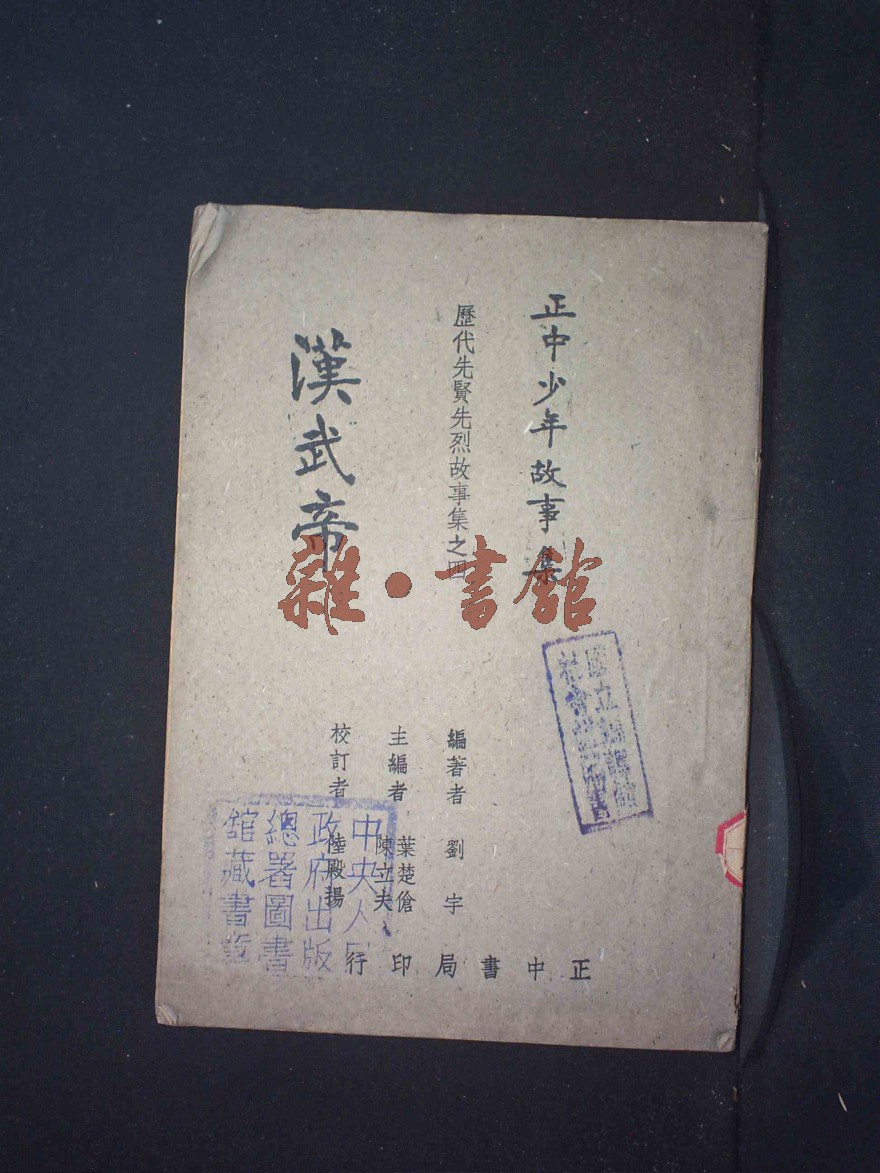 正中少年故事集
歷代先賢先烈故事集之四
漢武帝
雜·書館
編著者 劉宇
主編者 葉楚傖 陳立夫
校訂者 陸殿揚
正中書局印行
中央人民
政府出版
總署圖書
館藏書章
國立編譯館